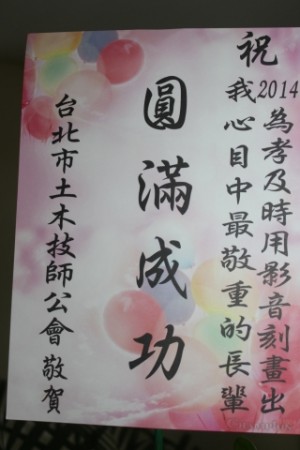 祝
2014為孝及時用影音刻畫出
我心目中最敬重的長輩
圓滿成功
台北市土木技師公會 敬賀